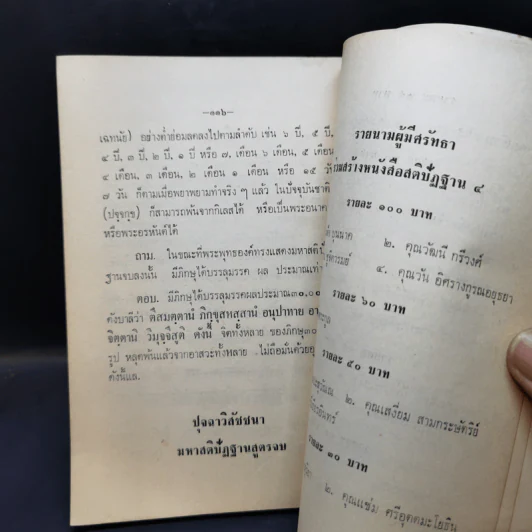 —๑๑๖—
เฉทนัย) อย่างต่ำย่อมลดลงไปตามลำดับ เช่น ๖ ปี, ๕ ปี,
๔ ปี, ๓ ปี, ๒ ปี, ๑ ปี หรือ ๗, เดือน ๖ เดือน, ๕ เดือน
๔ เดือน, ๓ เดือน, ๒ เดือน ๑ เดือน หรือ ๑๕ วัน
๗ วัน ก็ตามเมื่อพยายามทำจริง ๆ แล้ว ในปัจจุบันชาติ
(ปจฺจกฺข) ก็สามารถพ้นจากกิเลสได้ หรือเป็นพระอนาคา
หรือพระอรหันต์ได้
ถาม. ในขณะที่พระพุทธองค์ทรงแสดงมหาสติปั
ฐานจบลงนั้น มีภิกษุได้บรรลุมรรค ผล ประมาณเท่า
ตอบ. มีภิกษุได้บรรลุมรรคผลประมาณ๓๐,๐๐
ดังบาลีว่า ตึสมตฺตานํ ภิกฺขุสหสฺสานํ อนุปาทาย อา
จิตฺตานิ วิมุจฺจึสูติ ดังนี้ จิตทั้งหลาย ของภิกษุ๓๐
รูป หลุดพ้นแล้วจากอาสวะทั้งหลาย ไม่ถือมั่นด้วยอุ
ดังนี้แล.
ปุจฉาวิสัชชนา
มหาสติปัฏฐานสูตรจบ
รายนามผู้มีศรัทธา
มสร้างหนังสือสติปัฏฐาน ๔
รายละ ๑๐๐ บาท
บุนนาค ๒. คุณวัฒนี กรีวงศ์
๔. คุณวัน อิศรางกูรณอยุธยา
รายละ ๖๐ บาท
รายละ ๔๐ บาท
๒. คุณเสงี่ยม สามกระษัตริย์
ายละ ๓๐ บาท
๒. คุณแช่ม ศรีอุตตมะโยธิน